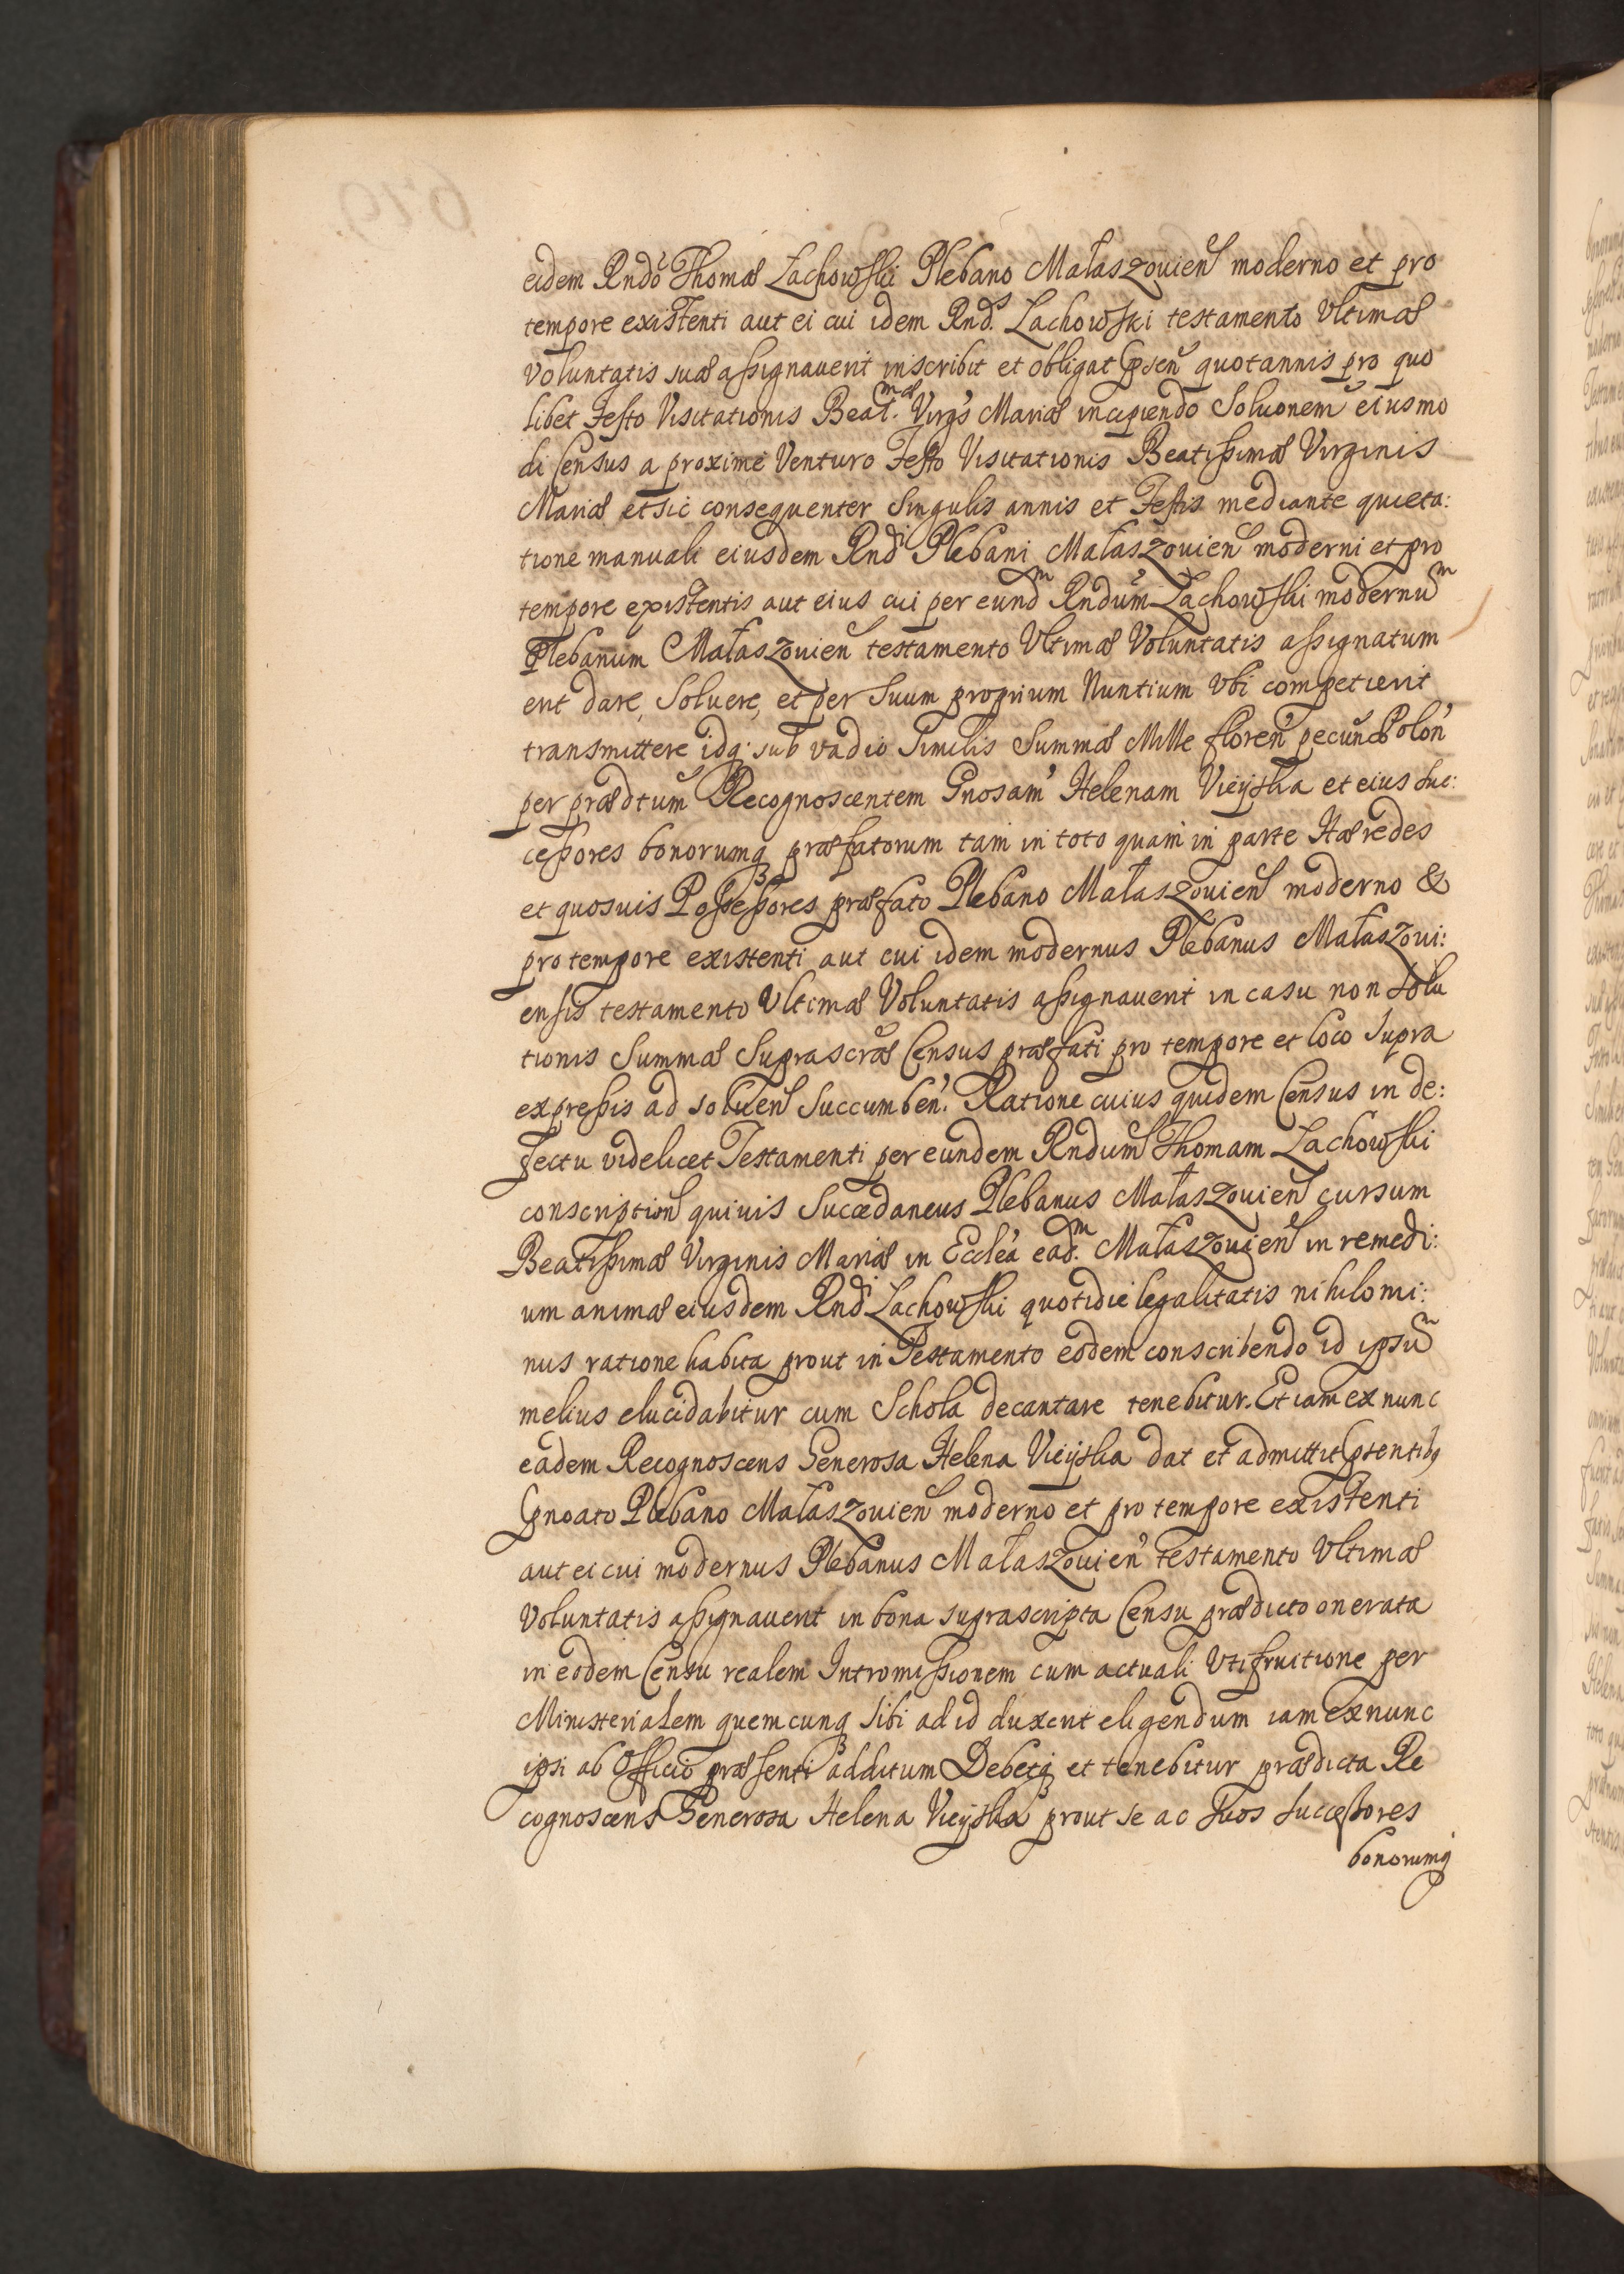 eidem Rndo Thomæ Lachowski Plebano Małaszovien moderno et pro
tempore existenti aut ei cui idem Rnds. Lachowski testamento Vltimæ
Voluntatis suæ assignauerit inscribit et obligat psen quotannis pro quo
libet Festo Visitationis Beat.mæ Virgs Mariæ incipiendo Soluonem eiusmo
di Census a proximè Venturo Festo Visitationis Beatissimæ Virginis
Mariæ et sic consequenter Singulis annis et Festis mediante quieta:
tione manuali eiusdem Rndi Plebani Małaszovien moderni et pro
tempore existentis aut eius cui per eundm Rndum Lachowski modernum
Plebanum Małaszovien testamento Vltimæ Voluntatis assignatum
erit dare, Soluere, et per Suum proprium Nuntium Vbi competierit
transmittere idq: sub vadio Similis Summæ Mille floren pecun Polon
per prædtum Recognoscentem Gnosam Helenam Vieyska et eius suc:
cessores bonorumq præfatorum tam in toto quam in parte Hæredes
et quosuis Possessores præfato Plebano Małaszovien moderno &
pro tempore existenti aut cui idem modernus Plebanus Małaszovi:
ensis testamento Vltimæ Voluntatis assignauerit in casu non Solu
tionis Summæ Suprascræ Census præfati pro tempore et loco Supra
expressis ad soluen Succumben. Ratione cuius quidem Census in de:
fectu videlicet Testamenti per eundem Rndum Thomam Lachowski
conscription quiuis Succedaneus Plebanus Małaszovien cursum
Beatissimæ Virginis Mariæ in Eccleа eadm. Małaszovien in remedi:
um animæ eiusdem Rndi Lachowski quotidie legalitatis nihilomi:
nus ratione habita prout in Testamento eodem conscribendo id ipsum
melius elucidabitur cum Schola decantare tenebitur. Et iam ex nunc
eadem Recognoscens Generosa Helena Vieyska dat et admittit pstentibq
pnoato Plebano Małaszovien moderno et pro tempore existenti
aut ei cui modernus Plebanus Małaszovien testamento Vltimæ
Voluntatis assignauerit in bona suprascripta Censu prædicto onerata
in eodem Censu realem Intromissionem cum actuali Vtifruitione per
Ministerialem quemcunq sibi ad id duxerit eligendum iam ex nunc
ipsi ab Officio præsenti additum Debetq et tenebitur prædicta Re
cognoscens Generosa Helena Vieyska prout se ac Suos Successores
bonorumq